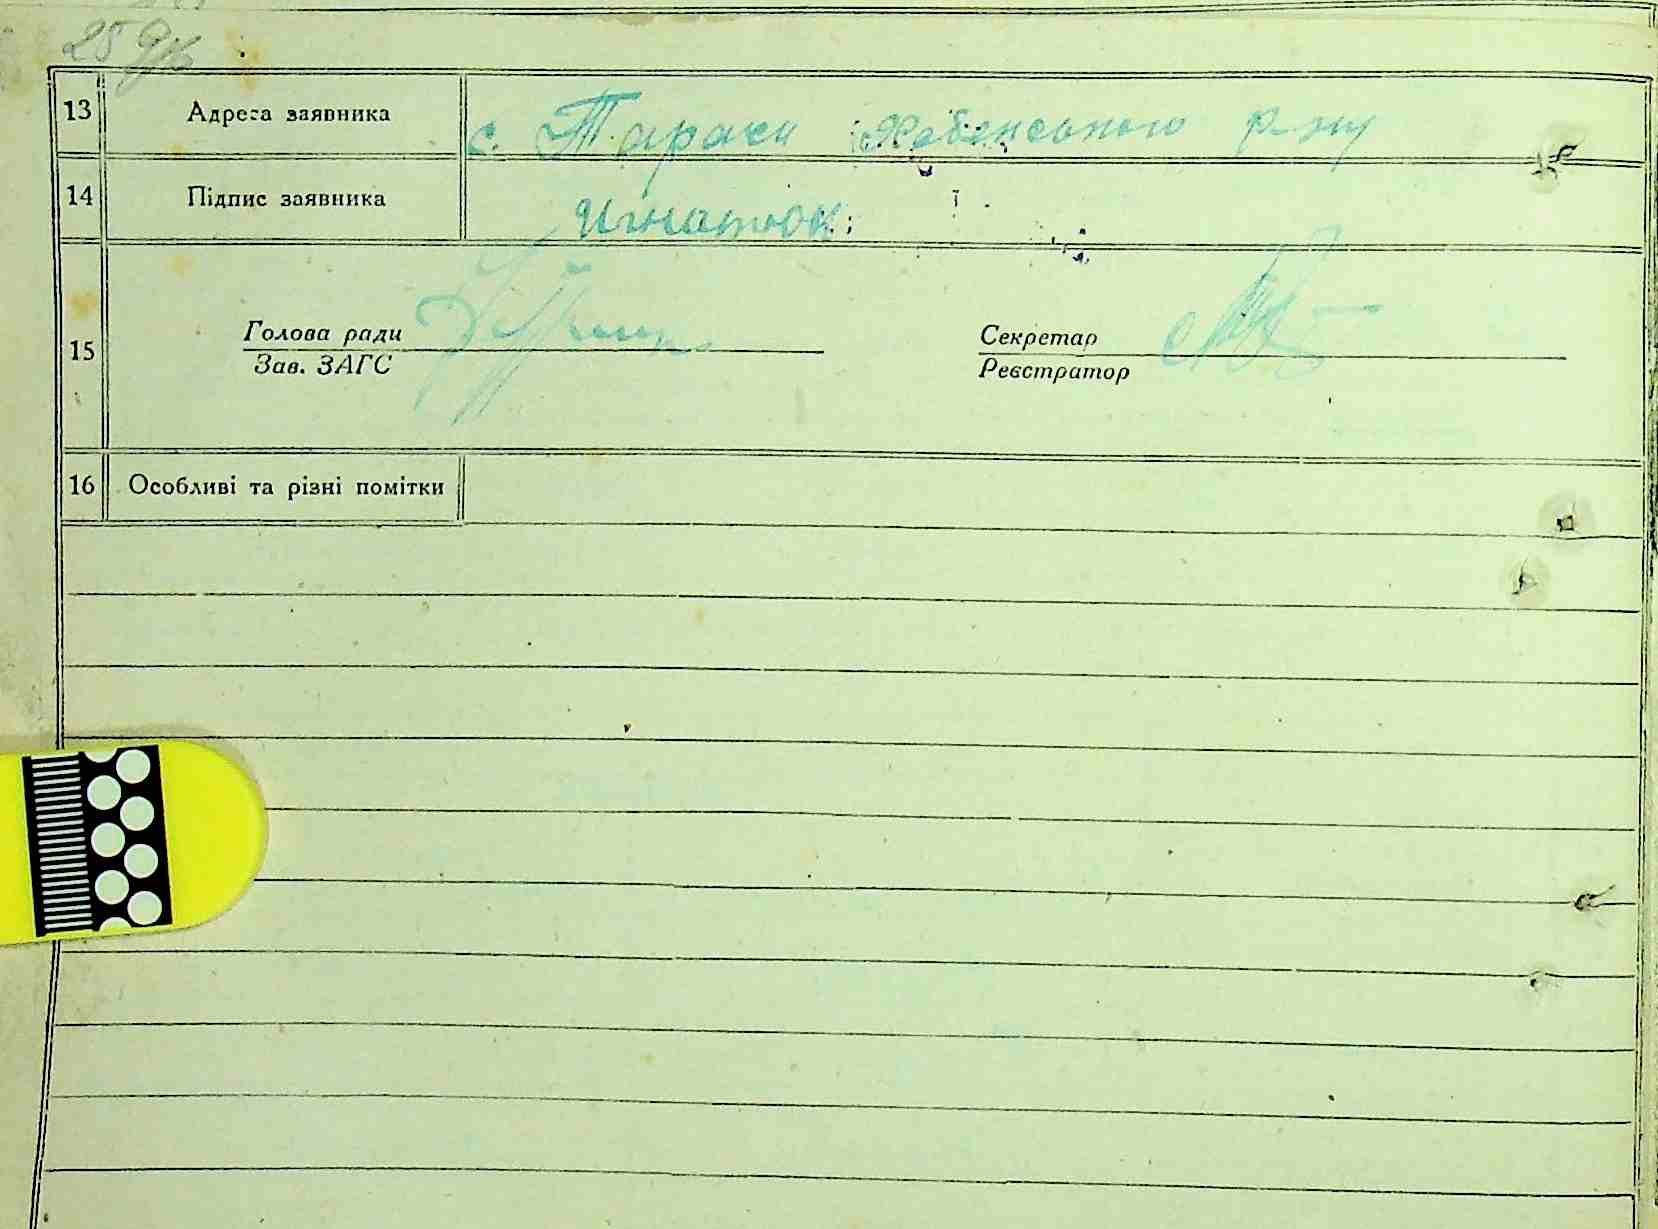 13 Адреса заявника с. Тараси Хабенського р-ну
14 Підпис заявника Игнатюк
15 Голова ради Секретар
Зав. ЗАГС Реєстратор
16 Особливі та різні помітки